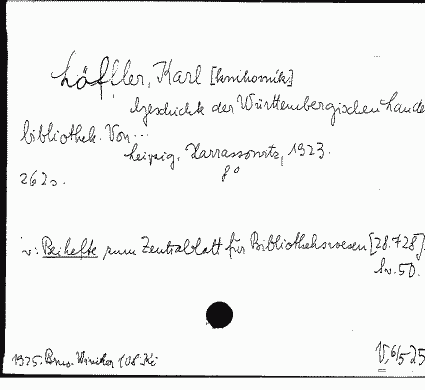 Löffler, Karl [knihovník]
Geschichte der Württembergischen Lande
bibliothek. Von...
Leipzig, Harrassowitz, 1923.
8°
262 s.
v: Beihefte zum Zentralblatt für Bibliothekswesen [28.728]
Sv. 50.
1925. 108
V, 6/5 25